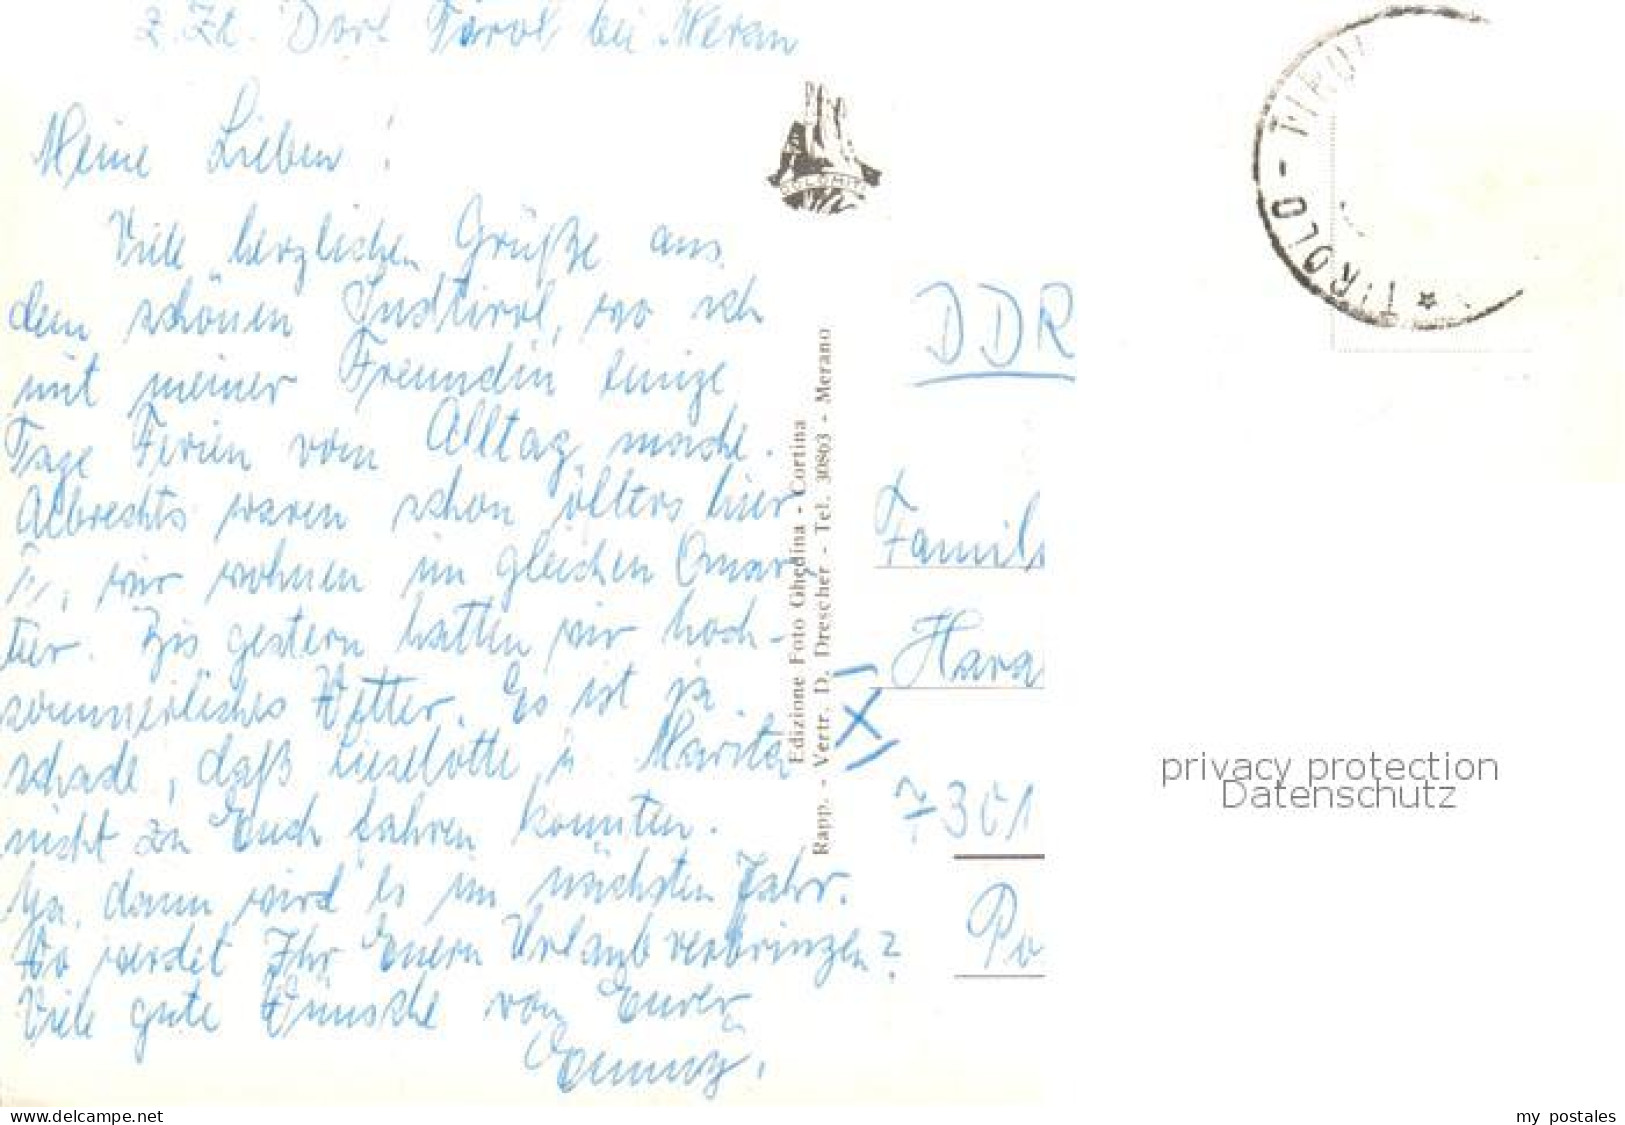 z. Zt. Dorf Tirol bei Meran
Meine Lieben!
Viele herzlichen Grüße aus
dem schönen Südtirol, wo ich
mit meiner Freundin einige
Tage Ferien vom Alltag mache.
Albrechts waren schon öfters hier
wir wohnen im gleichen Quar-
tier. Bis gestern hatten wir hoch-
sommerliches Wetter. Es ist ja
schade, daß Lieselotte u. Marita
nicht zu Euch fahren konnten.
Na, dann wird es im nächsten Jahr.
Wo werdet Ihr Euern Urlaub verbringen?
Viele gute Wünsche von Eurer
DOLOMITI
Edizione Foto Ghedina - Cortina
Rapp. - Vertr. D. Drescher - Tel. 30803 - Merano
TIROLO - TIROL
DDR
Famili
Hara
X
7301
Po
privacy protection
Datenschutz
www.delcampe.net
my_postales